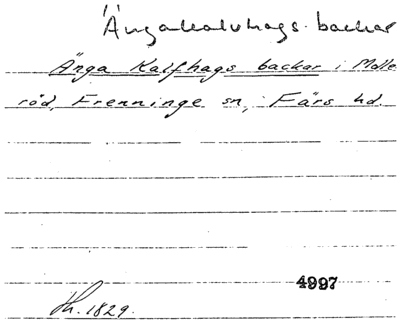 Ängakalvhags backar
Änga Kalfhags backar i Molle
röd, Frenninge sn, Färs hd.
4997
Th. 1829.